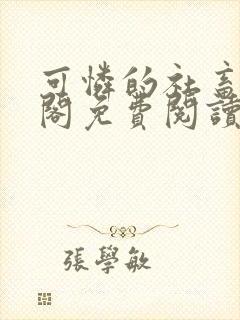 可憐的社畜
閣免費閱讀
張學敏